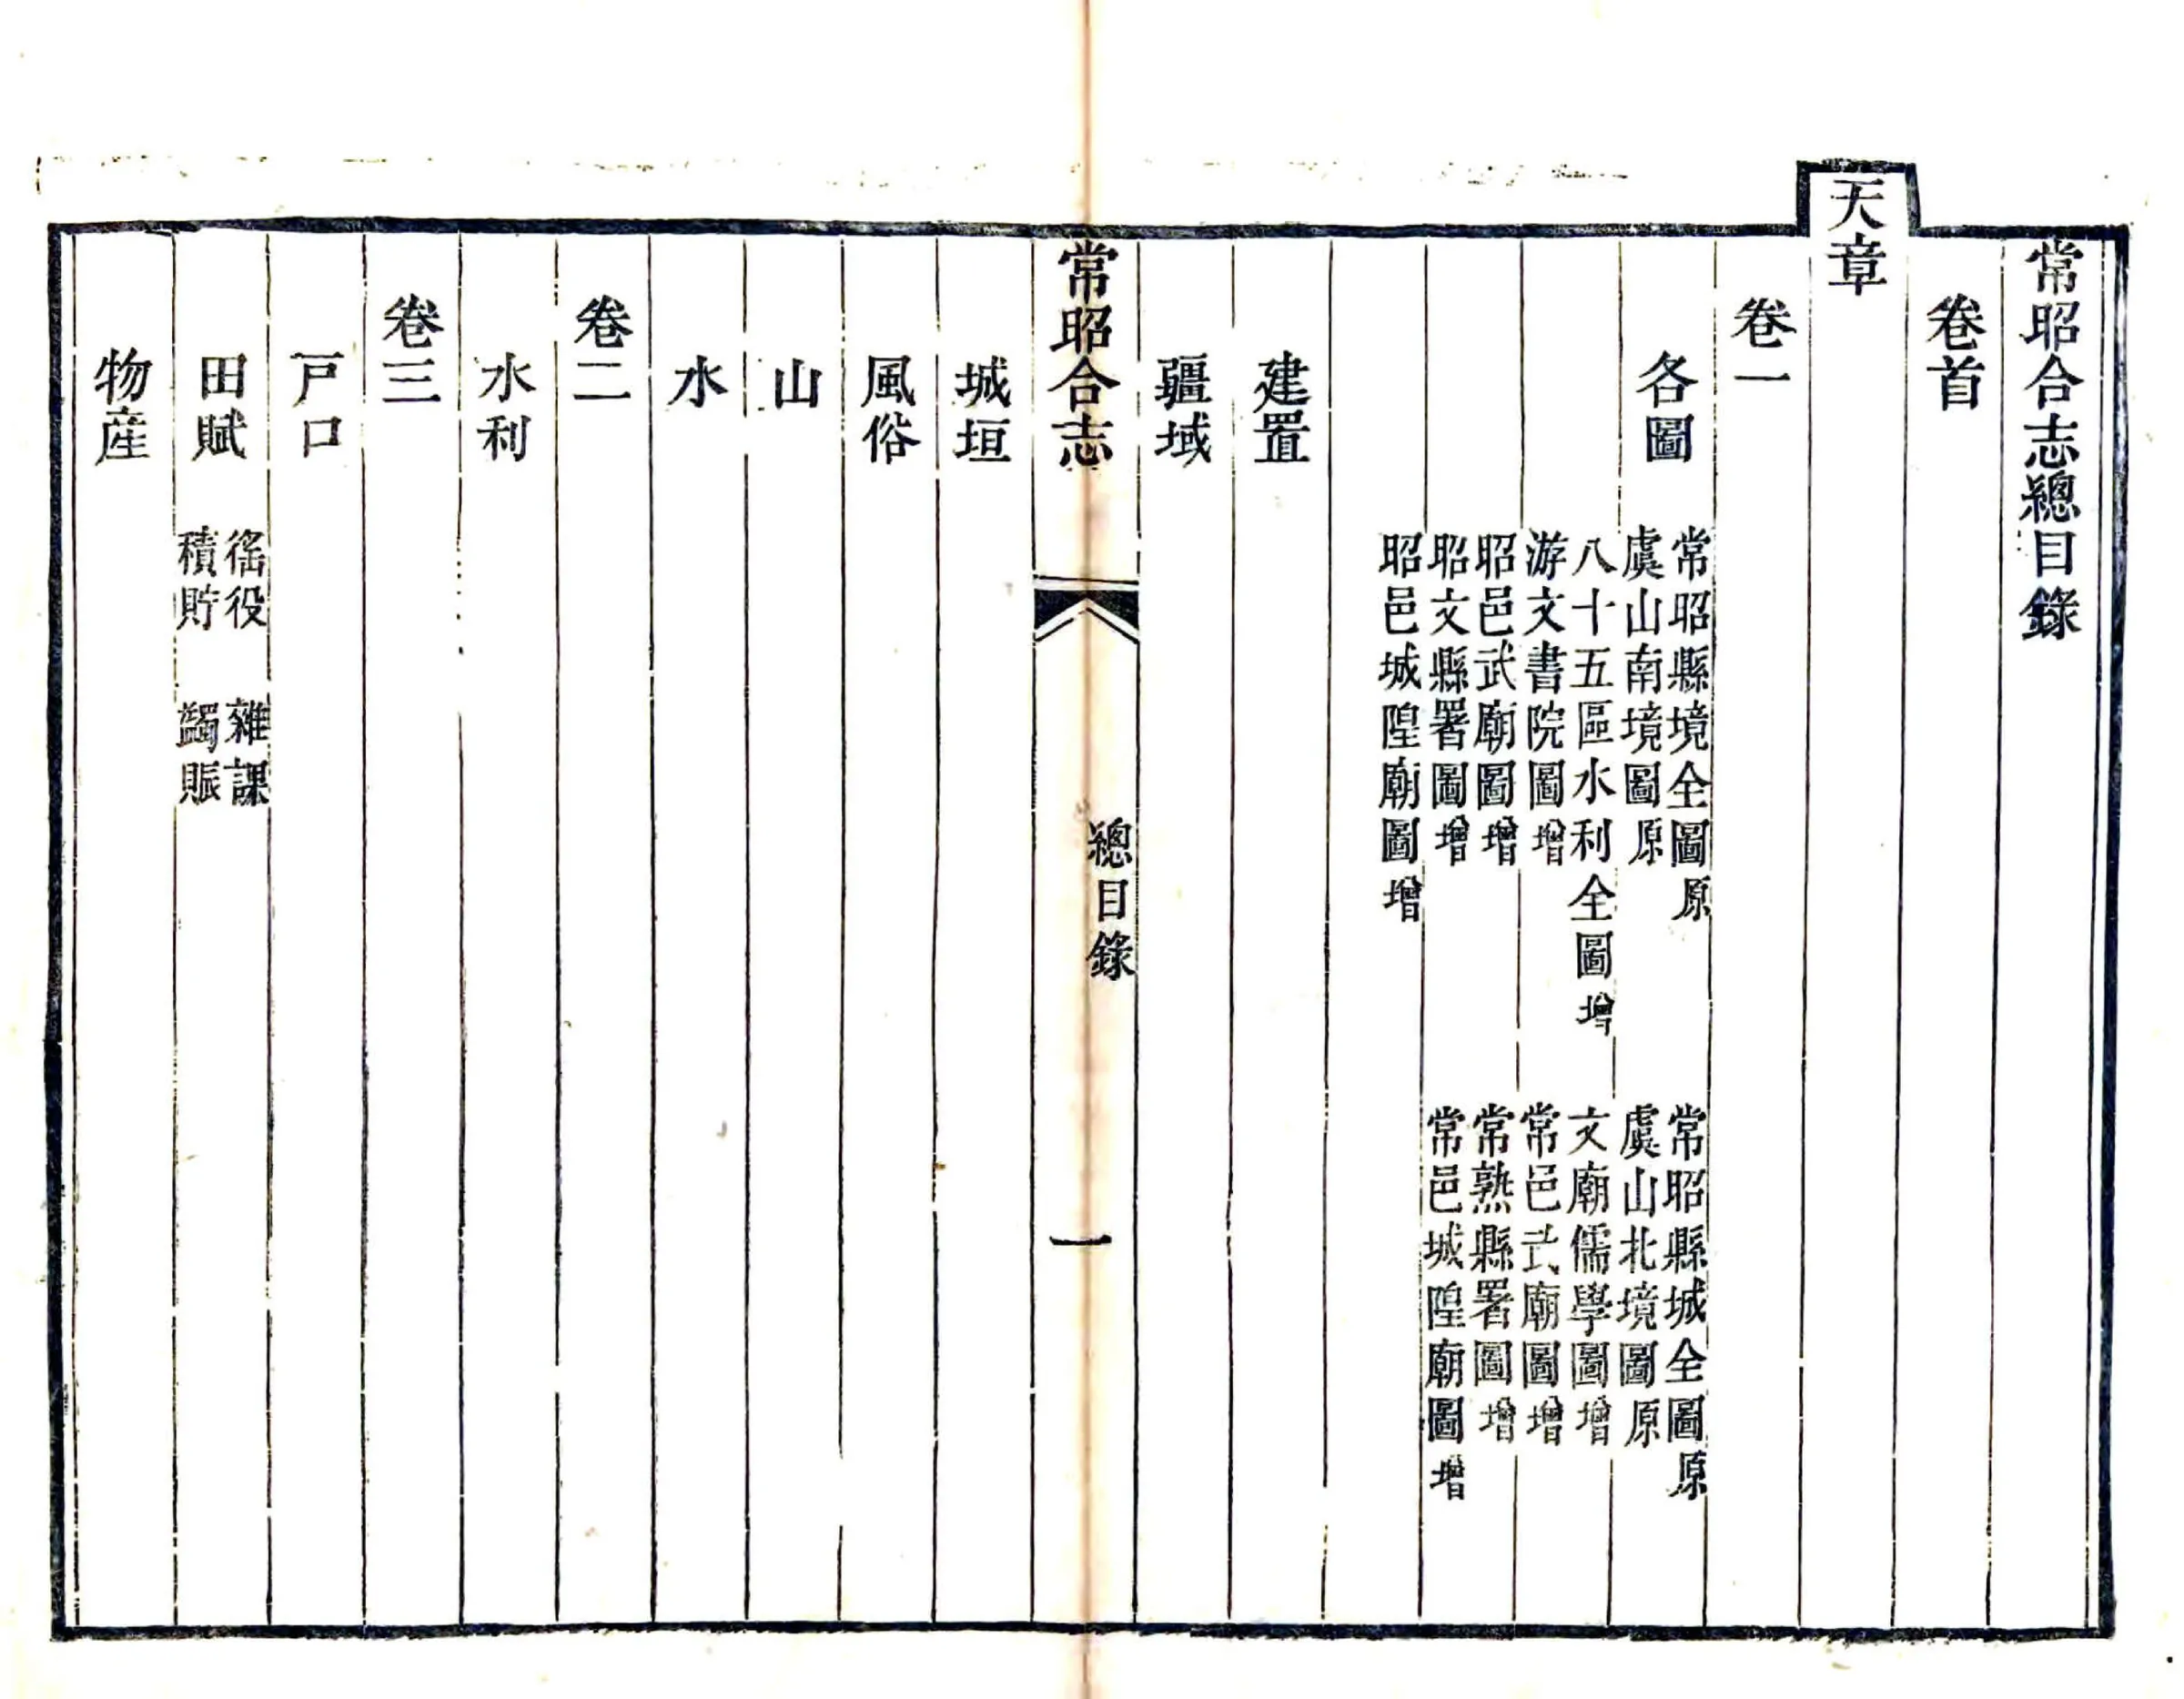 常昭合志總目錄
卷首
天章
卷一
各圖
常昭縣境全圖原
常昭縣城全圖原
虞山南境圖原
虞山北境圖原
八十五區水利全圖增
文廟儒學圖增
游文書院圖增
常邑武廟圖增
昭邑武廟圖增
常熟縣署圖增
昭文縣署圖增
常邑城隍廟圖增
昭邑城隍廟圖增
建置
疆域
常昭合志
總目錄
一
城垣
風俗
山
水
卷二
水利
卷三
戸口
田賦
徭役 雜課
積貯 蠲賑
物産